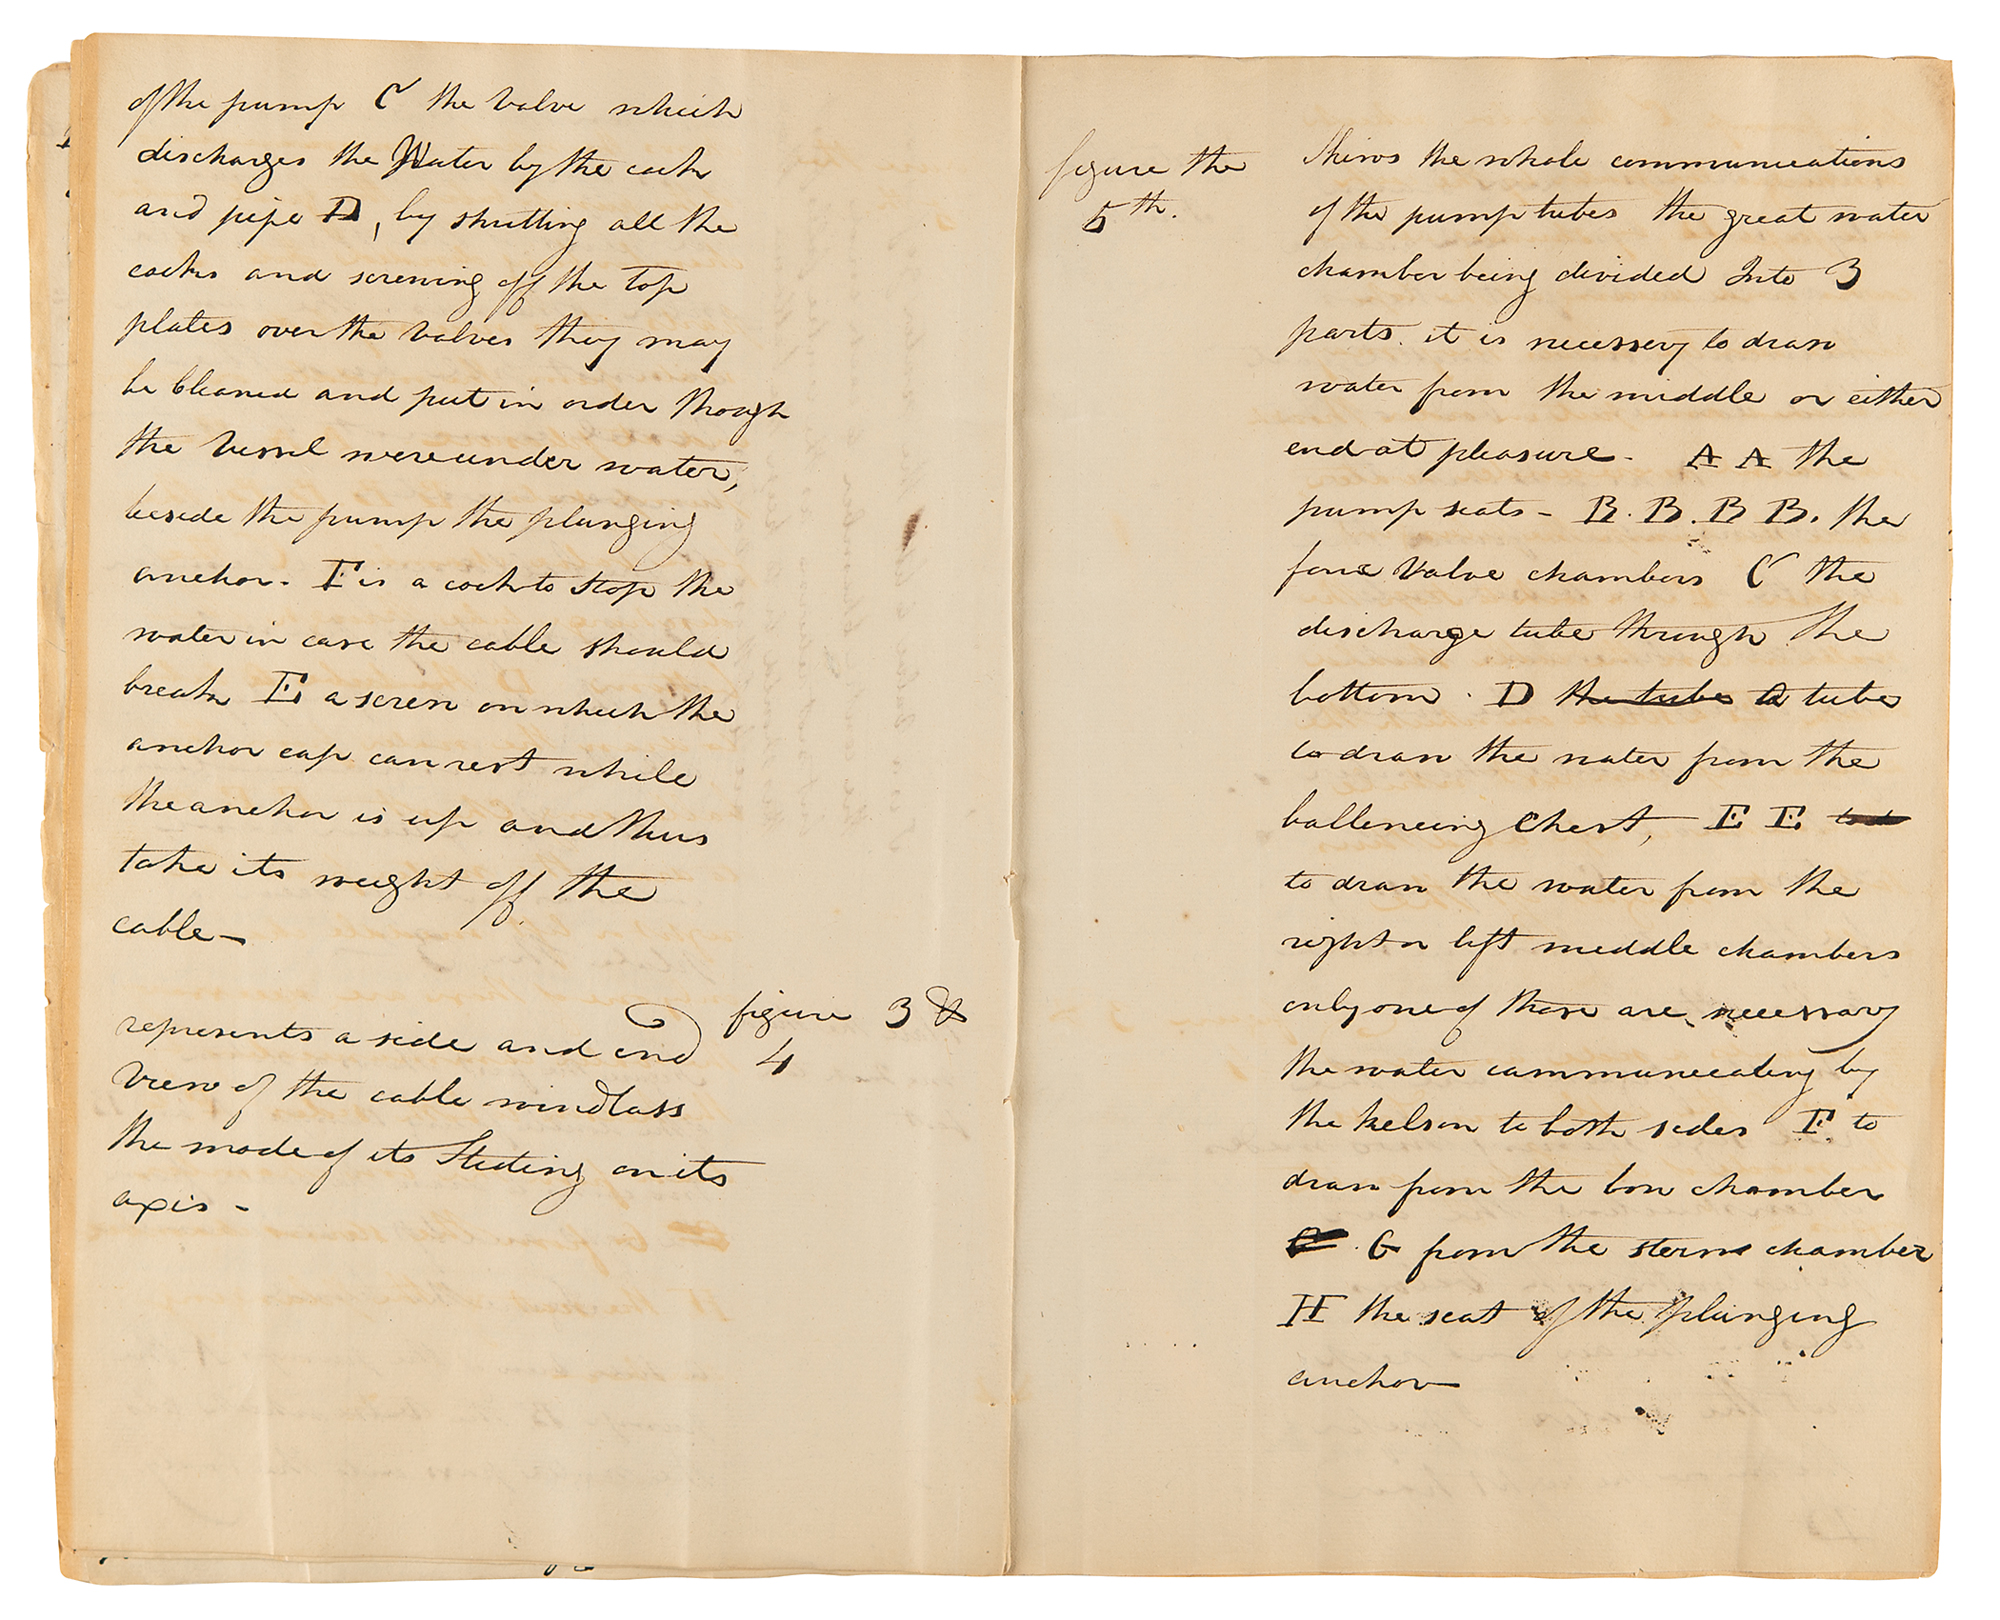 of the pump C the valve which
discharges the Water by the cock
and pipe D, by shutting all the
cocks and screwing off the top
plates over the valves they may
be cleaned and put in order though
the Vessel were under water,
beside the pump the plunging
anchor. F is a cock to stop the
water in case the cable should
break E a screw on which the
anchor cap can rest while
the anchor is up and thus
take its weight off the
cable —
figure 3 &
4
represents a side and end
View of the cable windlass
the mode of its on its
axis -
figure the
5th.
shews the whole communications
of the pump tubes the great water
chamber being divided Into 3
parts. it is necessery to draw
water from the middle or either
end at pleasure - A A the
pump seats - B. B. B B. the
four Valve chambers C the
discharge tube through the
bottom. D the tube a tube
to draw the water from the
ballencing Chest, E E
to draw the water from the
right or left meddle chambers
only one of these are necessary
the water communicating by
the kelson to both sides F to
draw from the bow chamber
G from the stern chamber
H the seat of the plunging
anchor